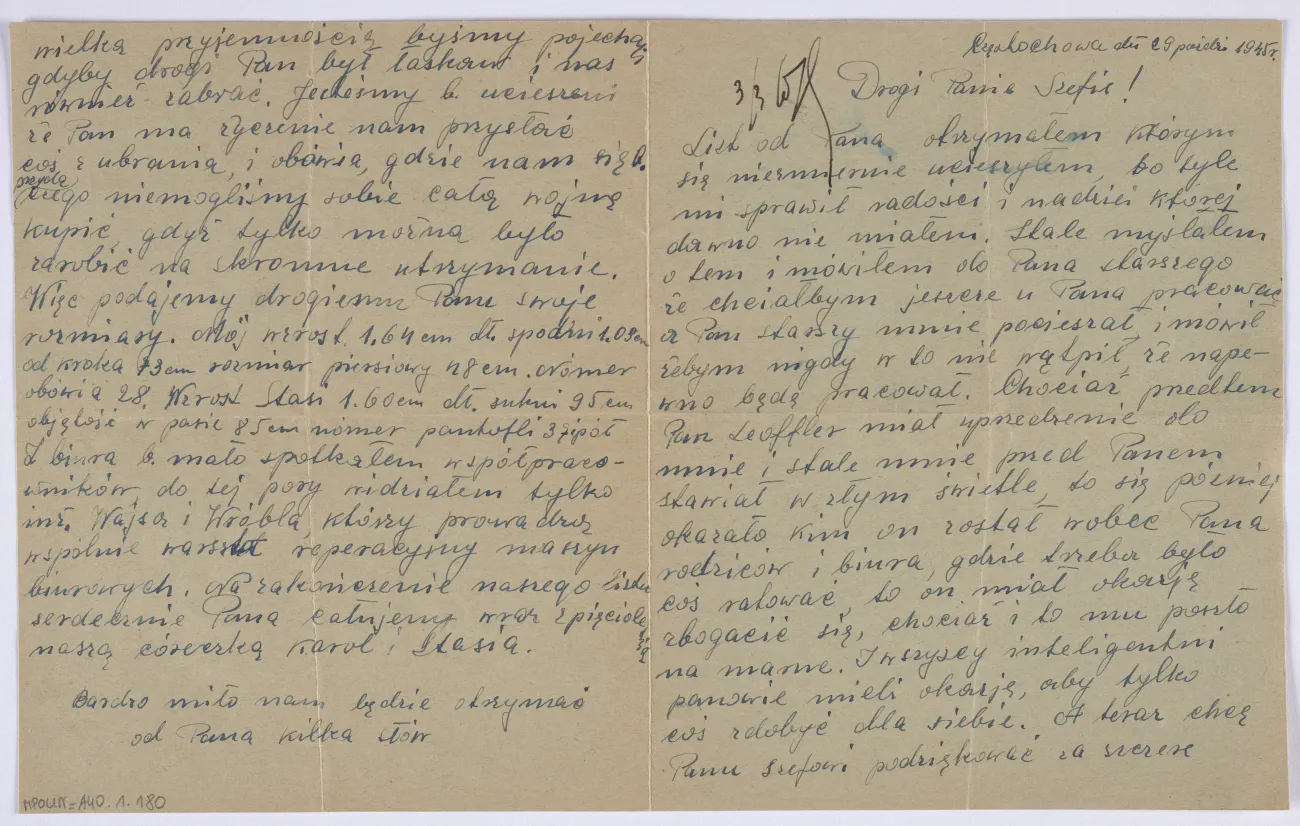 Częstochowa dn 29 paździ 1945r.
Drogi Panie Szefie!
List od Pana otrzymałem którym
się niezmiernie ucieszyłem, bo tyle
mi sprawił radości i nadziei której
dawno nie miałem. Stale myślałem
o tem i mówiłem do Pana starszego
że chciałbym jeszcze u Pana pracować
a Pan starszy mnie pocieszał, i mówił
żebym nigdy w to nie wątpił, że nape-
wno będę pracował. Chociaż przedtem
Pan Leoffler miał uprzedzenie do
mnie i stale mnie przed Panem
stawiał w złym świetle, to się później
okazało kim on został wobec Pana
rodziców i biura, gdzie trzeba było
coś ratować, to on miał okazję
zbogacić się, chociaż i to mu poszło
na marne. I wszyscy inteligentni
panowie mieli okazję, aby tylko
coś zdobyć dla siebie. A teraz chcę
Panu Szefowi podziękować za szczere
wielką przyjemnością byśmy pojechali
gdyby drogi Pan był łaskaw i nas
również zabrać. Jesteśmy b. ucieszeni
że Pan ma życzenie nam przysłać
coś z ubrania, i obówia, gdzie nam się b.
przyda
czego niemogliśmy sobie całą wojnę
kupić, gdyż tylko można było
zarobić na skromne utrzymanie.
Więc podajemy drogiemu Panu swoje
rozmiary. Mój wzrost. 1.64cm dł. spodni 1.03cm
od kroka 73cm rozmiar piersiowy 48cm. Nómer
obówia 28. Wzrost Stasi 1.60cm dł. sukni 95cm
objętość w pasie 85cm nómer pantofli 37 i pół
Z biura b. mało spotkałem współpraco-
wników, do tej pory widziałem tylko
inż. Wajsa i Wróbla, którzy prowadzą
wspólnie warsztat reperacyjny maszyn
biurowych. Na zakończenie naszego listu
serdecznie Pana całujemy wraz z pięcioletnią
naszą córeczką Karol i Stasia.
Bardzo miło nam będzie otrzymać
od Pana kilka słów
MPOLIN-A40.1.180